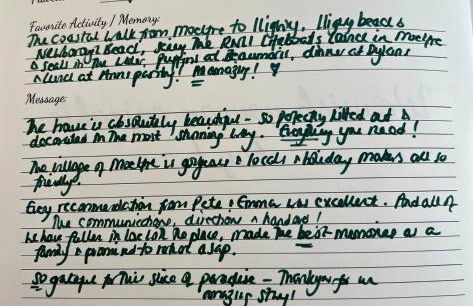 Favorite Activity / Memory:
The Coastal walk from Moelfre to Lligwy. Lligwy beach &
Newborough Beach, seeing the RNLI Lifeboats launch in Moelfre
& seals in the water, Puffins at Beaumaris, dinner at Dylans
& lunch at Ann's pantry! Amazing!
Message:
The house is absolutely beautiful - so perfectly kitted out &
decorated in the most stunning way. Everything you need!
The village of Moelfre is gorgeous & locals & holiday makers all so
friendly.
Every recommendation from Pete & Emma was excellent. And all of
the communications, directions & handover!
We have fallen in love with the place, made the best memories as a
family & promised to return asap.
So grateful for this slice of paradise - Thankyou for an
amazing stay!